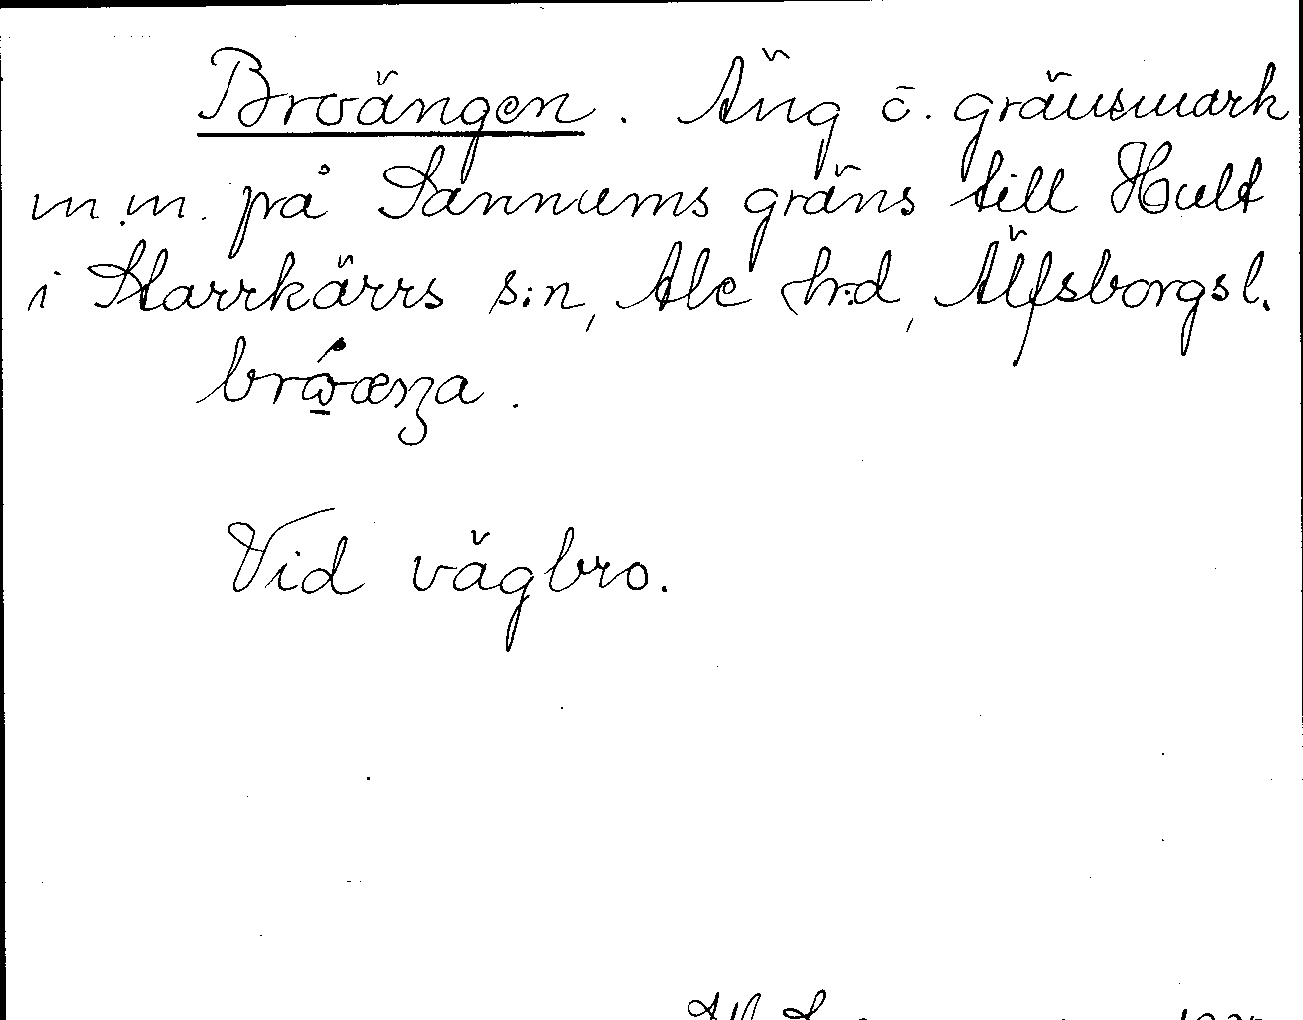 Broängen. Äng o. gränsmark
m.m. på Sannums gräns till Hult
i Starrkärrs s:n, Ale h:d, Älfsborgs l.
Vid vägbro.